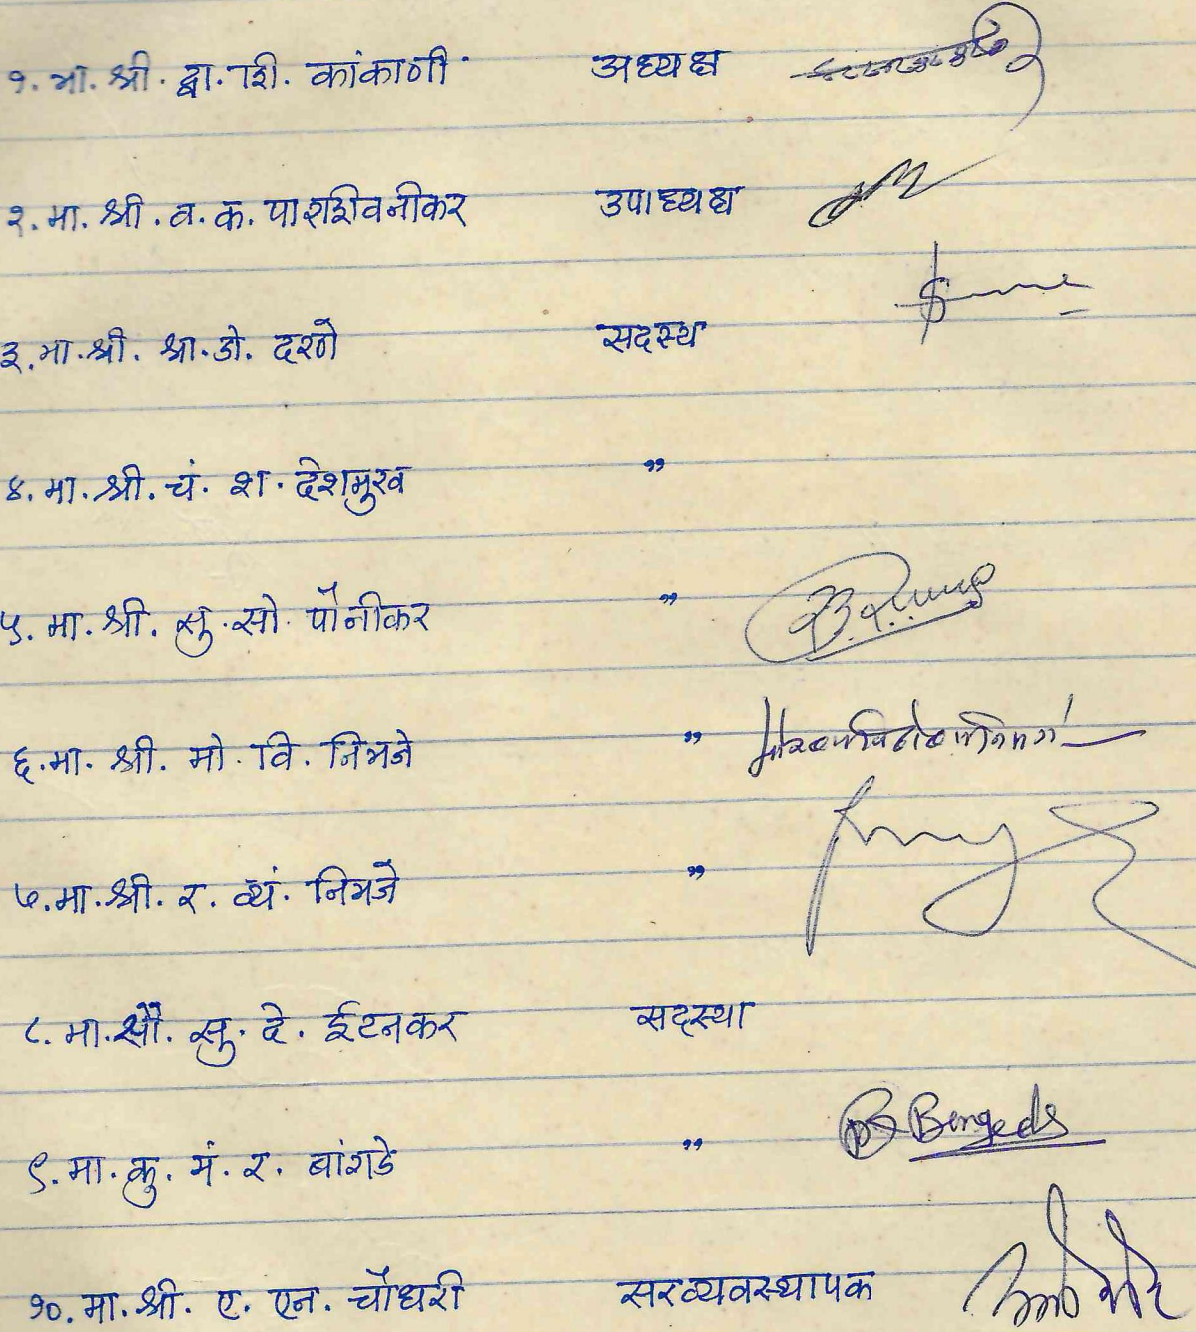 १. मा. श्री. द्वा. शि. कांकाणी अध्यक्ष
२. मा. श्री. व. क. पाराशिवनीकर उपाध्यक्ष
३. मा. श्री. श्रा. डो. दरणे सदस्य
४. मा. श्री. चं. श. देशमुख "
५. मा. श्री. सु. सो. पौनीकर "
६. मा. श्री. मो. वि. निमजे "
७. मा. श्री. र. व्यं. निमजे "
८. मा. सौ. सु. दे. ईटनकर सदस्या
९. मा. कु. मं. र. बांगडे "
१०. मा. श्री. ए. एन. चौधरी सरव्यवस्थापक